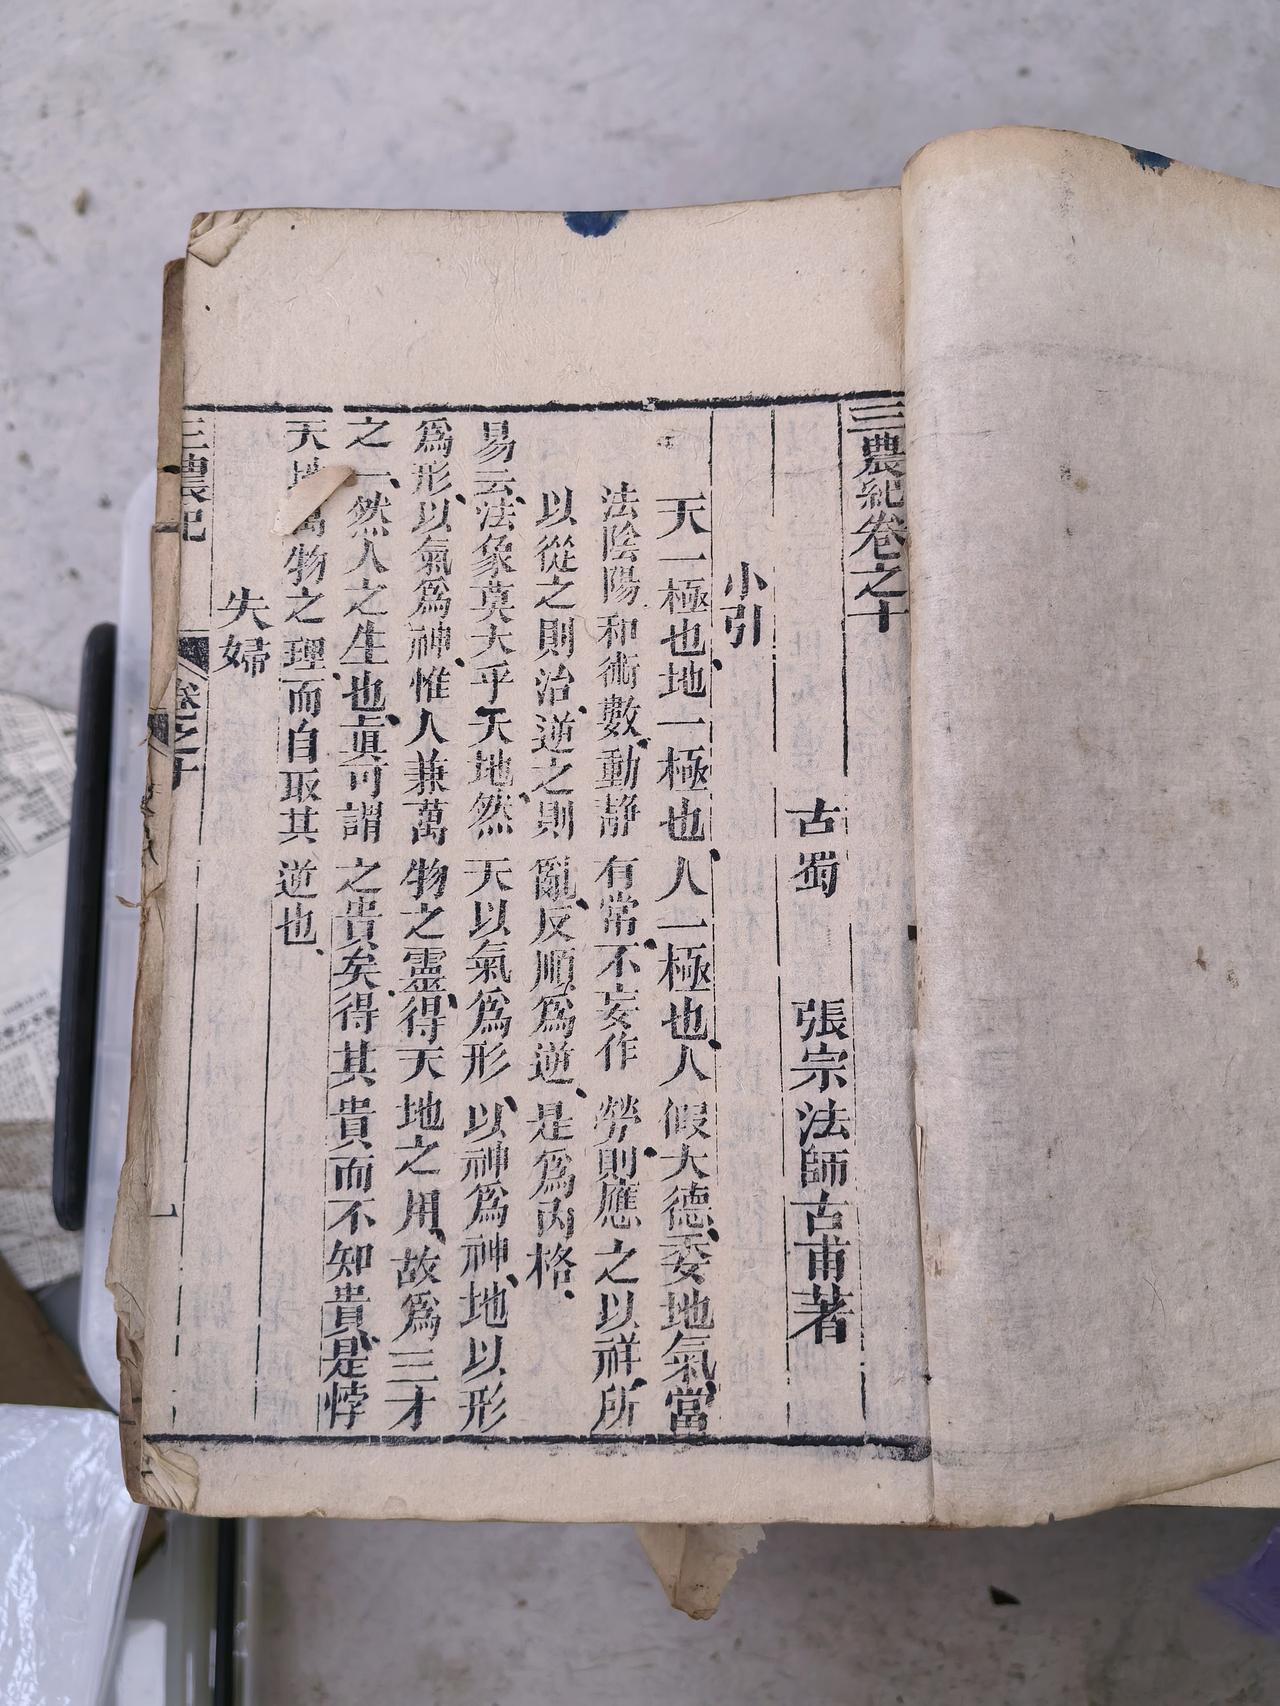 三農紀卷之十
古蜀 張宗法師古甫著
小引
天一極也地一極也人一極也人假大德委地氣當
法陰陽和術數動靜有常不妄作勞則應之以祥所
以從之則治逆之則亂反順爲逆是爲內格
易云法象莫大乎天地然天以氣爲形以神爲神地以形
爲形以氣爲神惟人兼萬物之靈得天地之用故爲三才
之一然人之生也眞可謂之貴矣得其貴而不知貴是悖
天地萬物之理而自取其逆也
夫婦
三農紀 卷之十 一